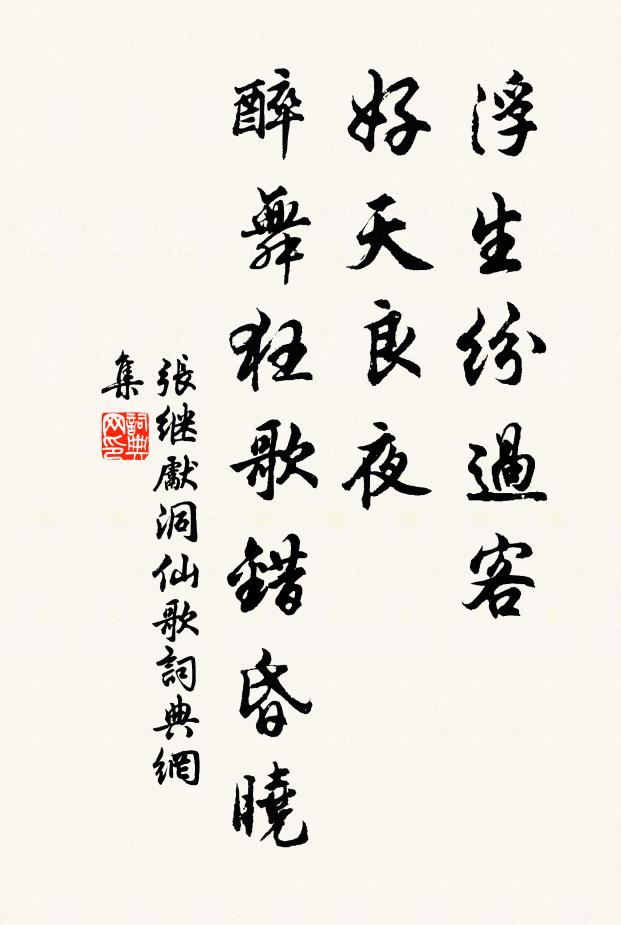 浮生紛過客
好天良夜
醉舞狂歌錯昏曉
張继獻洞仙歌詞典網
集
詞典
网印